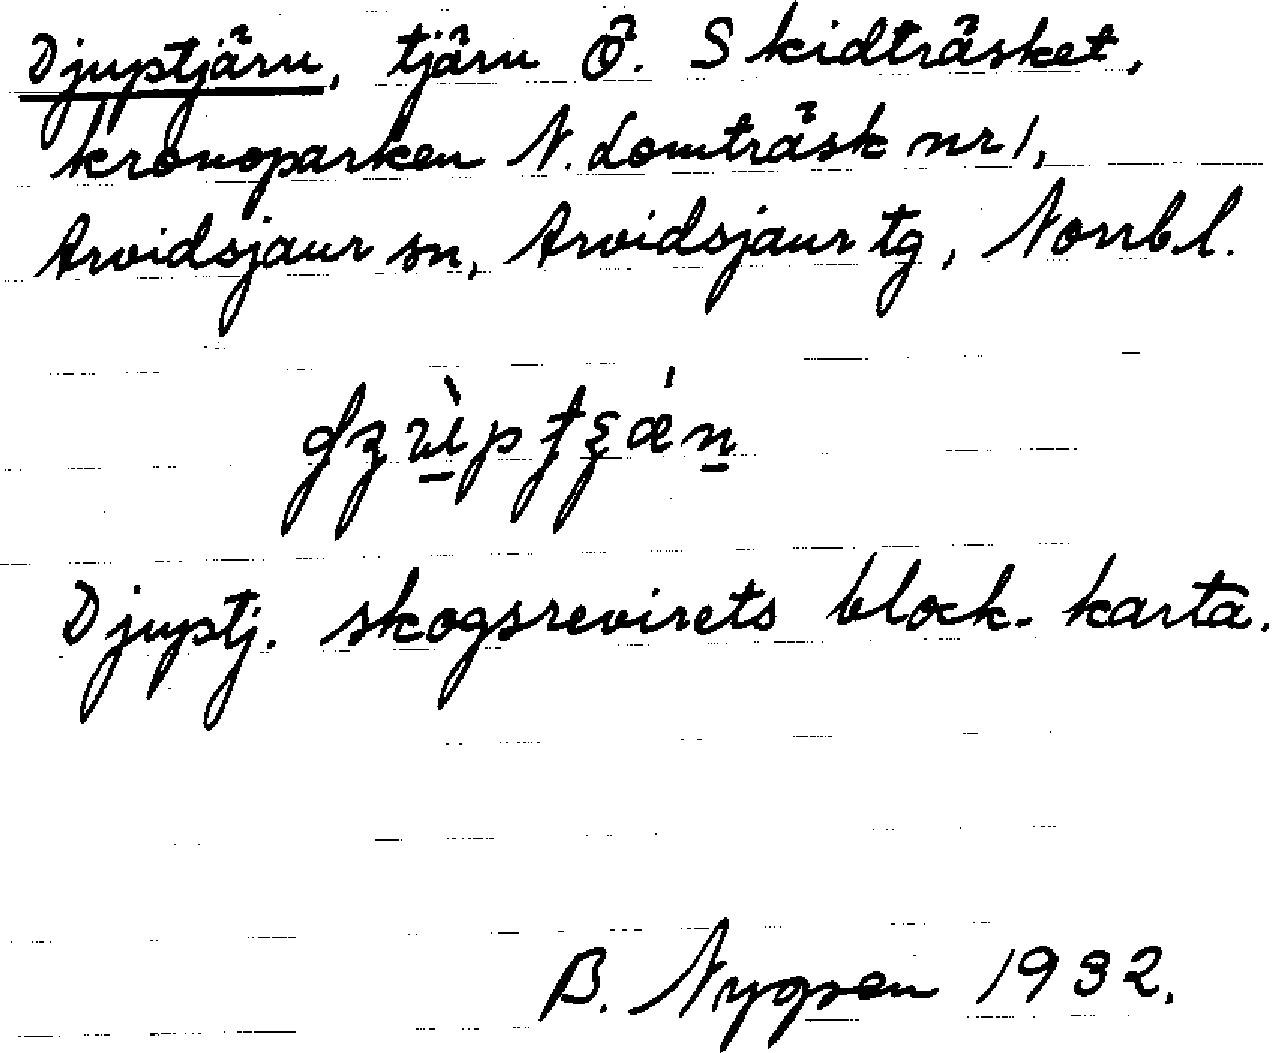 Djuptjärn, tjärn Ö. Skidträsket,
kronoparken N. Lomträsk nr 1,
Arvidsjaur sn, Arvidsjaur tg, Norrb. l.
Djuptj. skogsrevirets block-karta.
B. Nygren 1932.